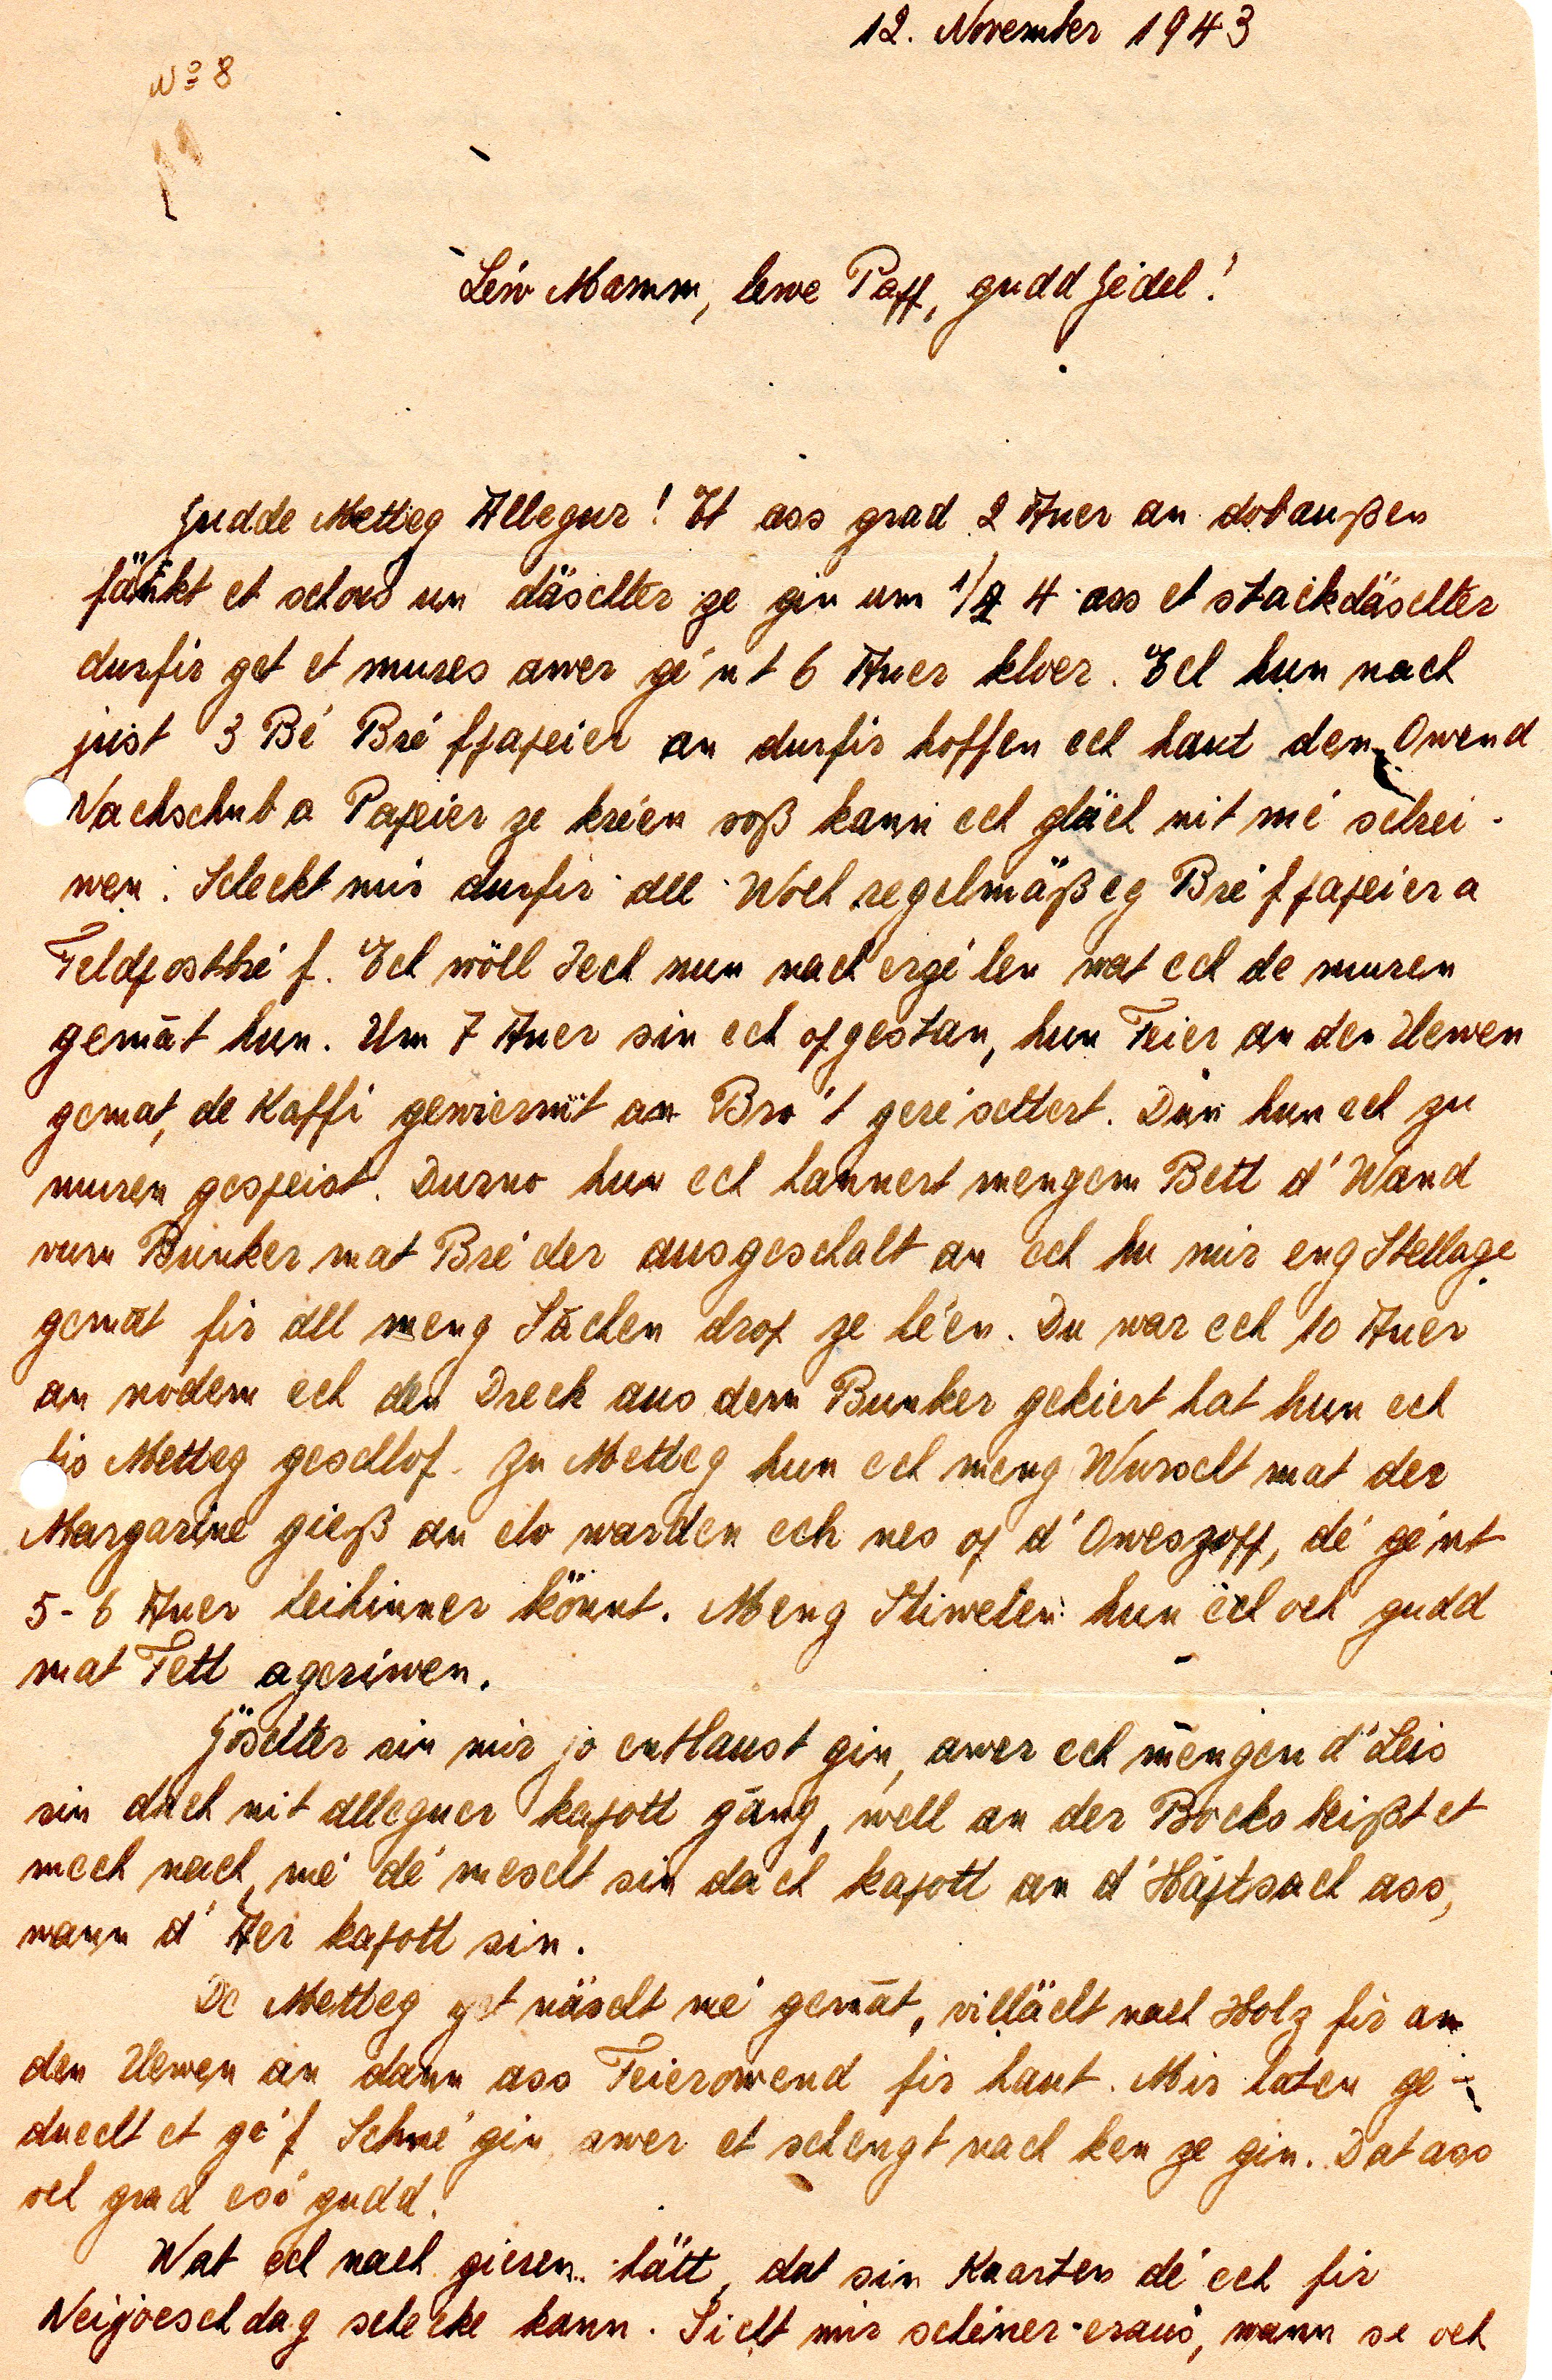 12. November 1943
No 8
Léiw Mamm, lewe Papp, gudd Jédel!
Gudde Metteg Allegur! Et ass grad 2 Auer an dobaußen
fänkt et schons un däschter ze gin um 1/2 4 ass et stackdäschter
durfir get et mures awer gé'nt 6 Auer kloer. Ech hun nach
just 3 Bé Bré'fpapeier an durfir hoffen ech haut den Owend
Nachschub a Papeier ze kréen soß kann ech gläch nit mé schrei-
wen. Scheckt mir durfir all Woch regelmäßeg Bré'fpapeier a
Feldpostbré'f. Ech wöll Iech nun nach erzé'len wat ech de muren
gemāt hun. Um 7 Auer sin ech opgestan, hun Feier an den Uewen
gemat, de Kaffi gewiermt an Bro't geré'schtert. Dun hun ech zu
muren gespeist. Durno hun ech hannert mengem Bett d'Wand
vum Bunker mat Bré'der ausgeschalt an ech hu mir eng Stellage
gemāt fir all meng Sāchen drop ze léen. Du war ech 10 Auer
an nodem ech den Dreck aus dem Bunker gekiert hat hun ech
bis Metteg geschlof. Zu Metteg hun ech meng Wurscht mat der
Margarine gieß an elo warden ech nes op d'Oweszopp, dé gé'nt
5-6 Auer heihinner könnt. Meng Stiwelen hun ech och gudd
mat Fett ageriwen.
Göschter sin mir jo entlaust gin, awer ech mēngen d'Leis
sin dach nit alleguer kapott gāng, well an der Bocks beißt et
mech nach, mé dé mescht sin dach kapott an d'Hāptsach ass,
wann d'Aer kapott sin.
De Metteg get näscht mé gemāt, villächt nach Holz fir an
den Uewen an dann ass Feierowend fir haut. Mir haten ge-
duecht et gé'f Schné gin awer et schengt nach ken ze gin. Dat ass
och grad esó gudd.
Wat ech nach gieren hätt, dat sin Kaarten dé ech fir
Neijoeschdag schecke kann. Sicht mir schéiner eraus, wann se och